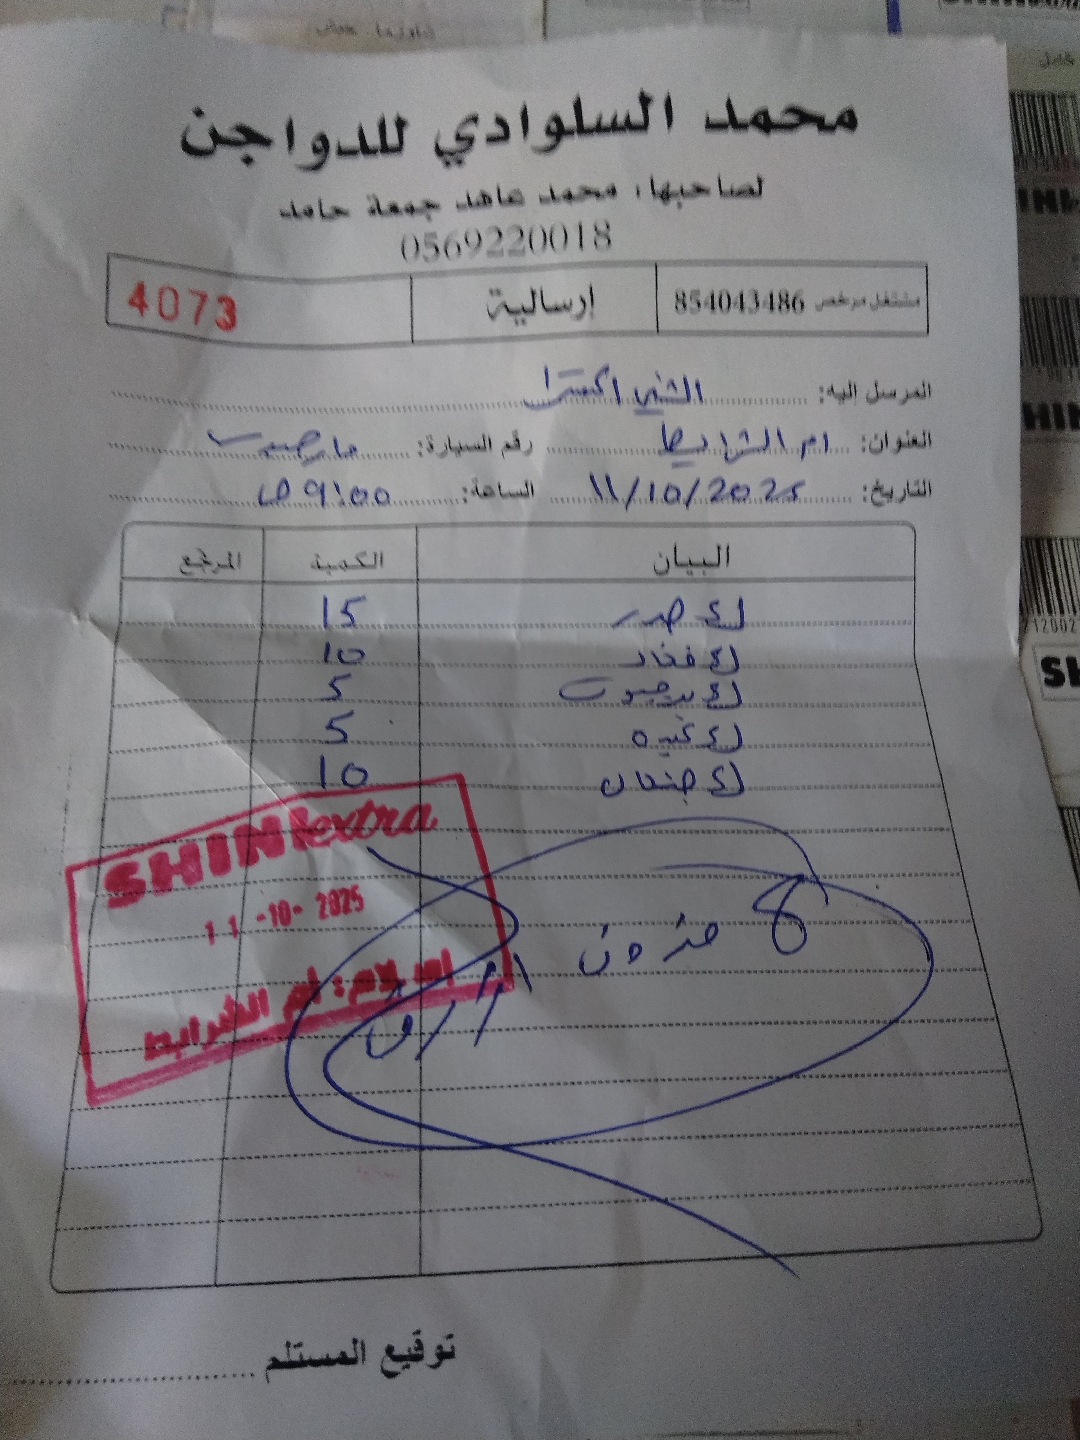 محمد السلوادي للدواجن
لصاحبها: محمد عاهد جمعة حامد
0569220018
مشتغل مرخص 854043486 إرسالية 4073
المرسل إليه: الشني اكسترا
العنوان: ام الشرايط رقم السيارة:
التاريخ: 11/10/2025 الساعة: 9:00 ص
البيان الكمية المرتجع
كغ صدر 15
كغ فخاد 10
كغ 5
كغ 5
كغ جنحان 10
SHINI extra
11-10-2025
استلام: أم الشرايط
8
توقيع المستلم
SHINI